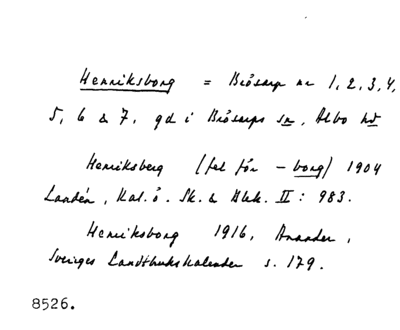 Henriksborg = Brösarp nr 1, 2, 3, 4,
5, 6 & 7, gd i Brösarps sn, Albo hd
Henriksberg (fel för - borg) 1904
Landén, Kal. ö. Sk. & Blek. II: 983.
Henriksborg 1916, Anander,
Sveriges Landtbrukskalender s. 179.
8526.